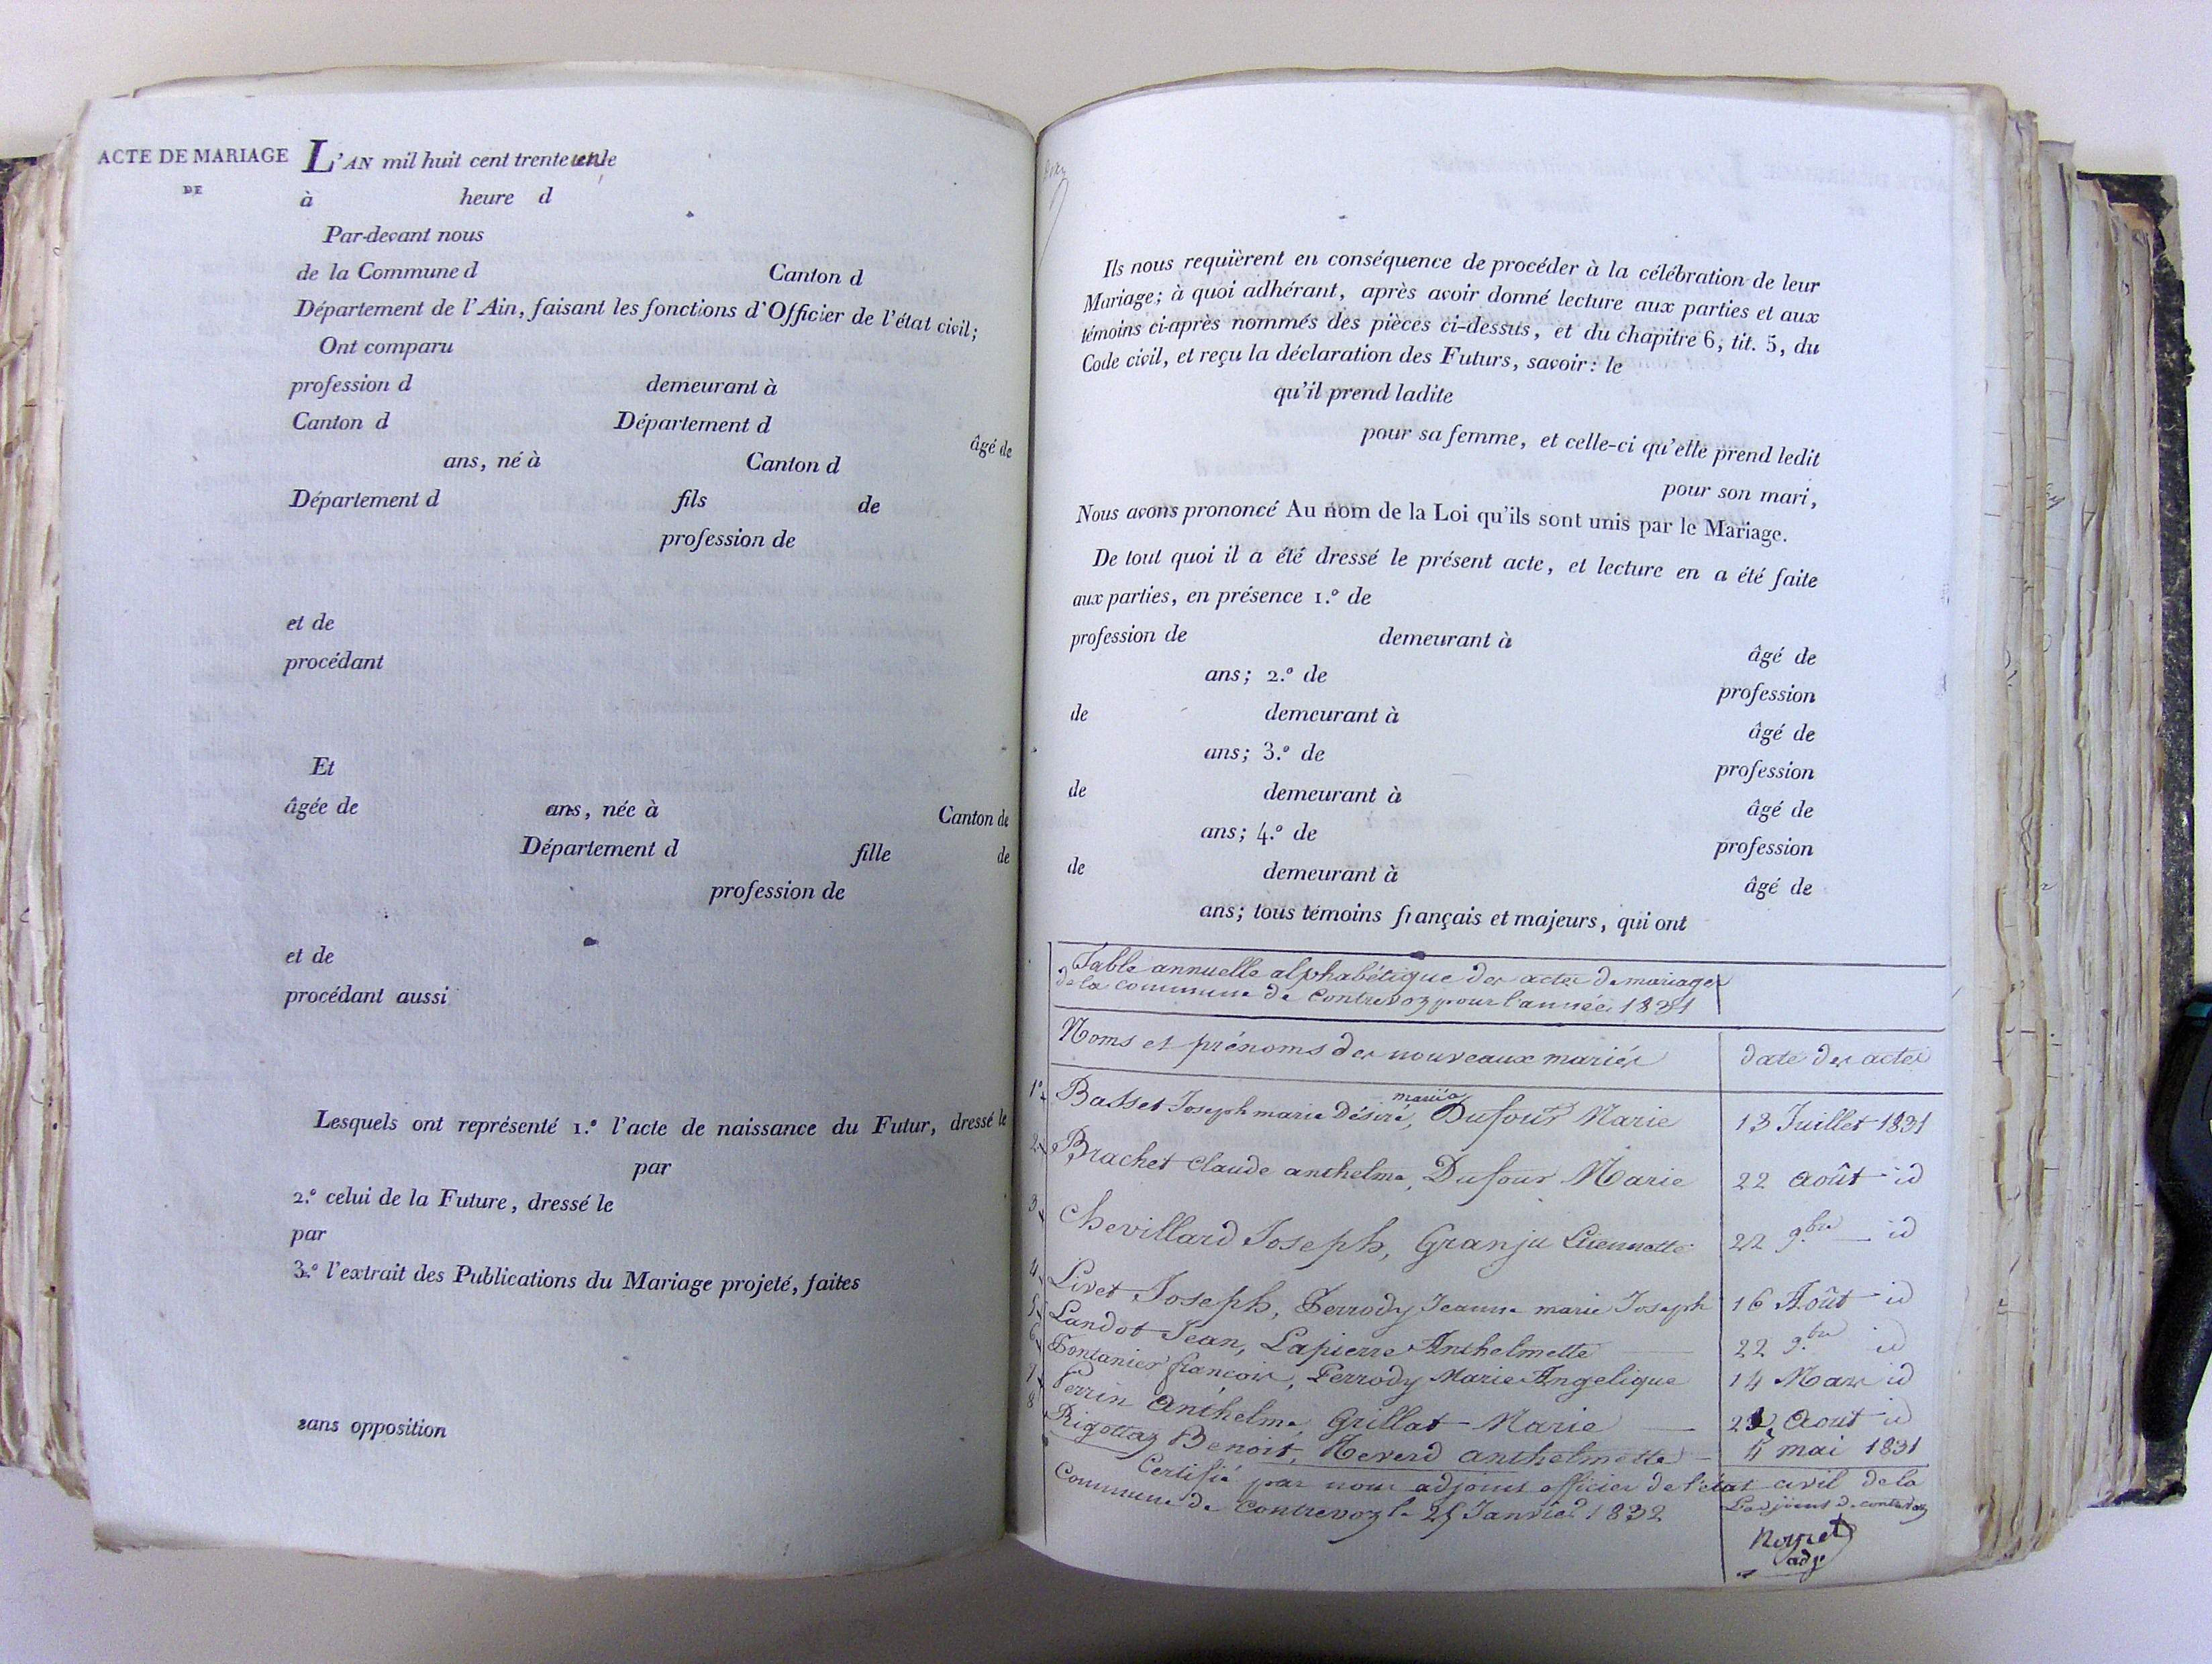 ACTE DE MARIAGE
DE
L'AN mil huit cent trente un le
à heure d
Par-devant nous
de la Commune d Canton d
Département de l'Ain, faisant les fonctions d'Officier de l'état civil;
Ont comparu
profession d demeurant à
Canton d Département d
âgé de
ans, né à Canton d
Département d fils de
profession de
et de
procédant
Et
âgée de ans, née à Canton de
Département d fille de
profession de
et de
procédant aussi
Lesquels ont représenté 1.º l'acte de naissance du Futur, dressé le
par
2.º celui de la Future, dressé le
par
3.º l'extrait des Publications du Mariage projeté, faites
sans opposition
Ils nous requièrent en conséquence de procéder à la célébration de leur
Mariage; à quoi adhérant, après avoir donné lecture aux parties et aux
témoins ci-après nommés des pièces ci-dessus, et du chapitre 6, tit. 5, du
Code civil, et reçu la déclaration des Futurs, savoir: le
qu'il prend ladite
pour sa femme, et celle-ci qu'elle prend ledit
pour son mari,
Nous avons prononcé Au nom de la Loi qu'ils sont unis par le Mariage.
De tout quoi il a été dressé le présent acte, et lecture en a été faite
aux parties, en présence 1.º de
profession de demeurant à âgé de
ans; 2.º de profession
de demeurant à âgé de
ans; 3.º de profession
de demeurant à âgé de
ans; 4.º de profession
de demeurant à âgé de
ans; tous témoins français et majeurs, qui ont
Table annuelle alphabétique des actes de mariages
de la commune de Contrevoz pour l'année 1831
Noms et prénoms des nouveaux mariés date des actes
1º Basset Joseph marie Désiré, Dufour Marie 13 Juillet 1831
2 Brachet Claude anthelme, Dufour Marie 22 Août id
3 Chevillard Joseph, Granju 22 9.bre id
4 Livet Joseph, Ferrody Jeanne marie Joseph 16 Août id
5 Landot Jean, Lapierre Anthelmette 22 9.bre id
6 Fontanier francois, Perrody Marie Angelique 14 Mars id
7 Perrin Anthelme, Grillat Marie Aout id
8 Rigottaz Benoit, anthelmette mai 1831
Certifié par nous adjoint officier de l'état civil de la
Commune de Contrevoz le 25 Janvier 1832
L'adjoint de contrevoz
adj